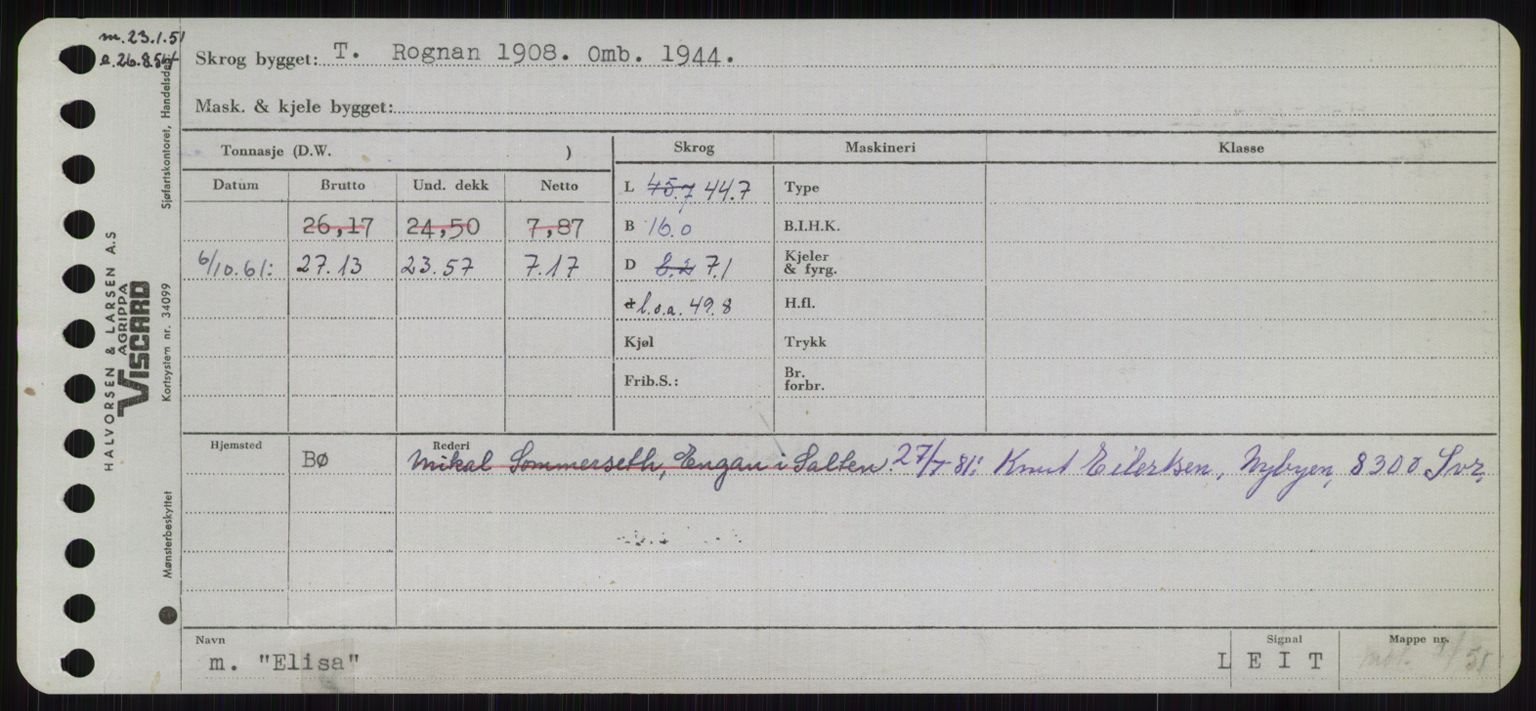 m. 23.1.51
e. 26.8.54
Skrog bygget: T. Rognan 1908. Omb. 1944.
Mask. & kjele bygget:
Tonnasje (D.W. )
Skrog Maskineri Klasse
Datum Brutto Und. dekk Netto
L 45.7 44.7 Type
26,17 24,50 7,87
B 16.0 B.I.H.K.
6/10.61: 27.13 23.57 7.17
D 8.2 7.1 Kjeler & fyrg.
d l.o.a. 49.8 H.fl.
Kjøl Trykk
Frib.S.: Br. forbr.
Hjemsted Rederi
BØ Mikal Sommerseth, Engan i Salten. 27/7 81: Knut Eilertsen, Nybyen, 8300 Svv,
Navn Signal Mappe nr.
m. "Elisa" L E I T
HALVORSEN & LARSEN A.S
AGRIPPA
VISCARD
Mønsterbeskyttet Kortsystem nr. 34099 Sjøfartskontoret, Handelsdep